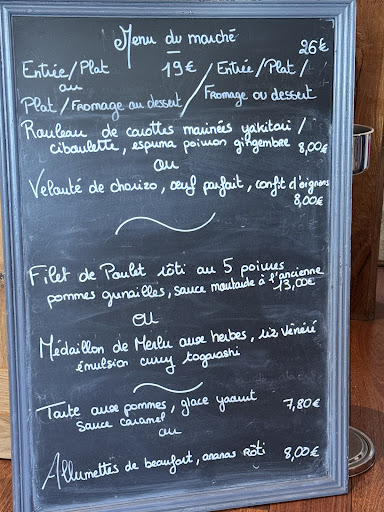 Menu du marché
26€
Entrée/Plat 19€ / Entrée/Plat/
ou
Plat/Fromage ou dessert / Fromage ou dessert
Rouleau de carottes marinées yakitori /
ciboulette, espuma poivron gingembre 8,00€
ou
Velouté de chorizo, oeuf parfait, confit d'oignons
8,00€
Filet de Poulet rôti au 5 poivres
pommes grenailles, sauce moutarde à l'ancienne
13,00€
ou
Médaillon de Merlu aux herbes, riz vénéré
émulsion curry togarashi
Tarte aux pommes, glace yaourt 7,80€
sauce caramel
ou
Allumettes de beaufort, ananas rôti 8,00€